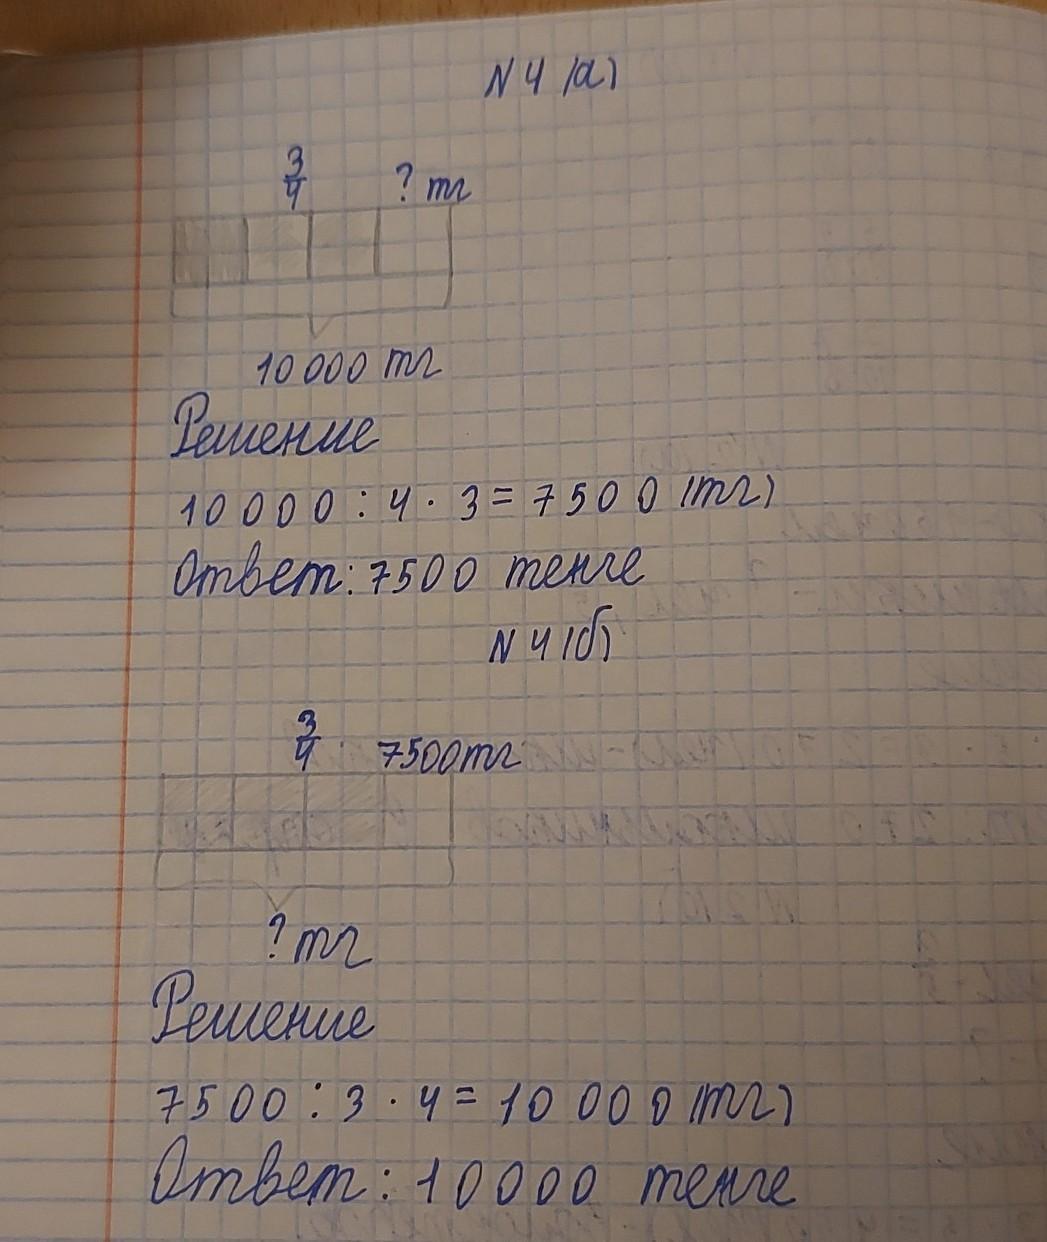 N 4 (а)
3/4 ? тг
10 000 тг
Решение
10000 : 4 · 3 = 7500 (тг)
Ответ: 7500 тенге
N 4 (б)
3/4 7500тг
? тг
Решение
7500 : 3 · 4 = 10 000 (тг)
Ответ: 10000 тенге